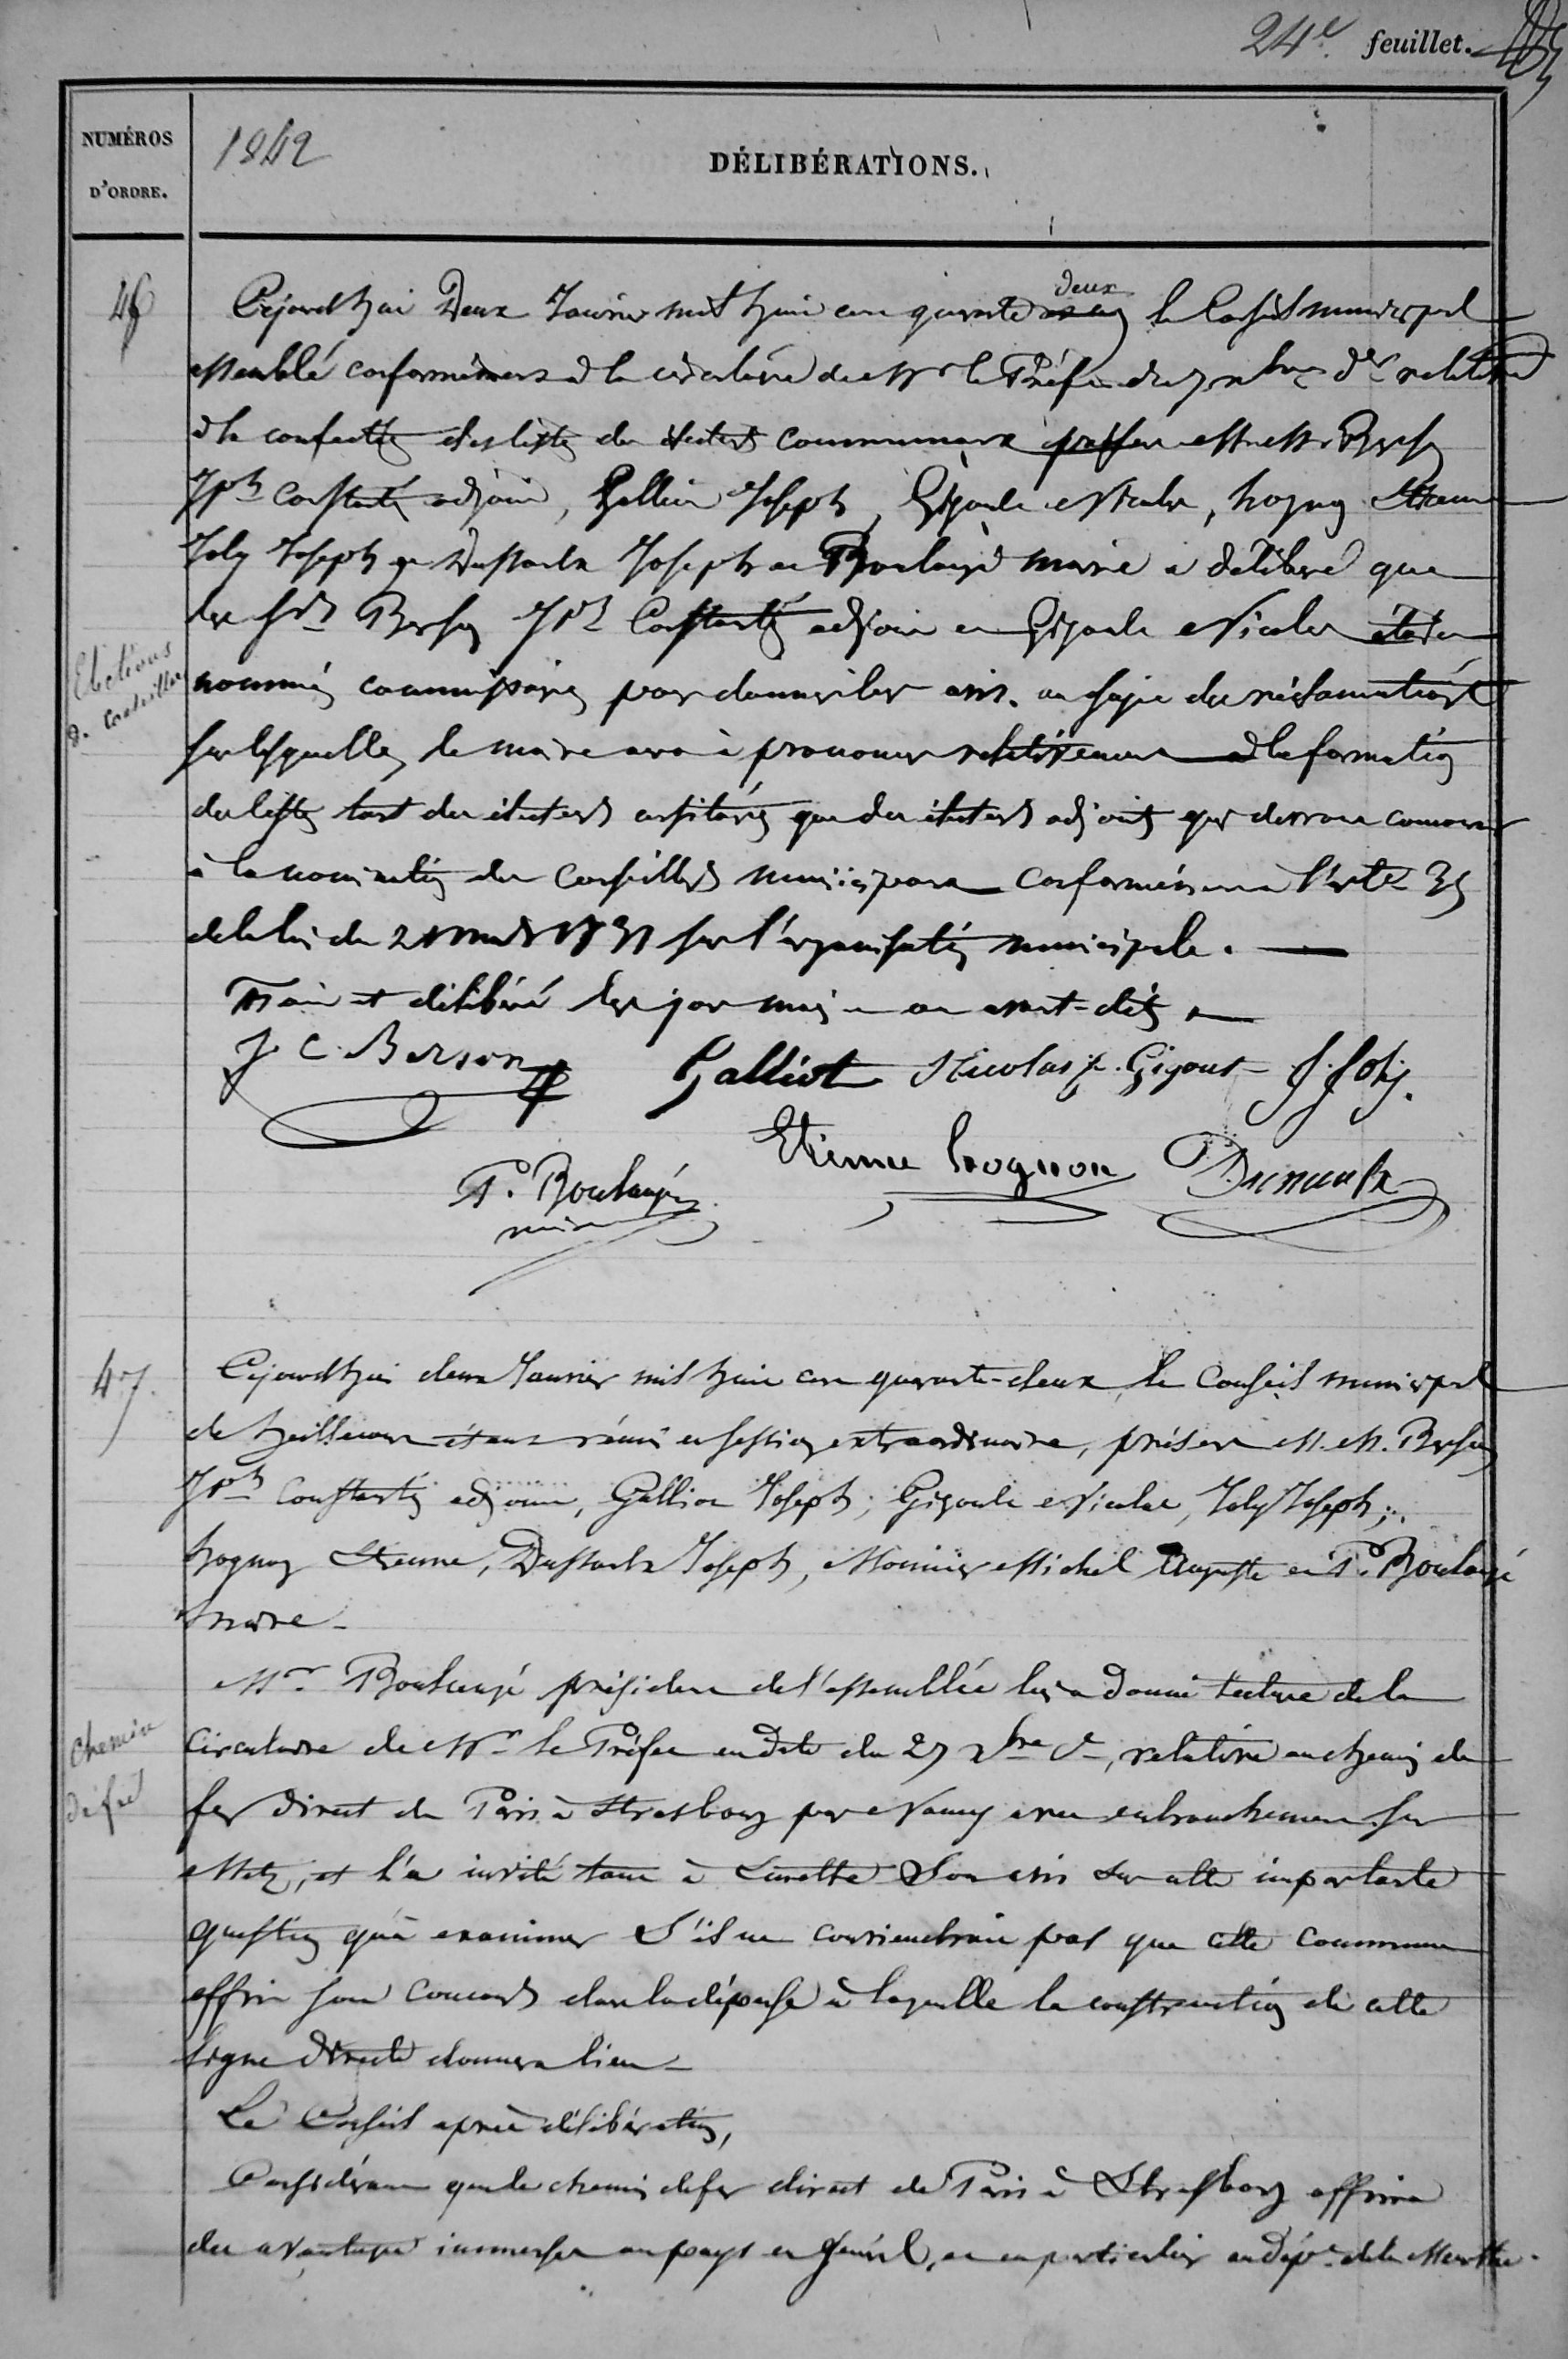 24e feuillet.
NUMÉROS
D'ORDRE.
1842
DÉLIBÉRATIONS.
Cejourd'hui Deux Janvier mil huit cent quarante deux le Conseil municipal
assemblé conformément à la circulaire de Mr le Préfet du 7 xbre der relative
à la confection des listes des électeurs communaux présens MM. Berson
Jph Constantin adjoint, Galliot Joseph, Gigout Nicolas, hognon Etienne
Joly Joseph et Joseph et Boulangé maire a délibéré que
les Srs Berson Jph Constantin adjoint et Gigout Nicolas étaient
Elections
d. Conseillers
nommés commissaires pour donner leur avis au sujet des réclamations
sur lesquelles le maire aura à prononcer relativement à la formation
des listes tant des électeurs censitaires que des électeurs adjoints qui devront concourir
à la nomination des Conseillers municipaux conformément à l'arte 35
de la loi du 21 mars 1831 sur l'organisation municipale.
Fait et délibéré les jour mois et an avant-dits
J. C. Berson Galliot Nicolas Gigout J. Joly.
Etienne hognon
P. Boulangé
maire
47.
Cejourd'hui deux Janvier mil huit cent quarante-deux, le Conseil municipal
de heillecourt étant réuni en session extraordinaire, présens M.M. Berson
Jph Constantin adjoint, Galliot Joseph, Gigout Nicolas, Joly Joseph,
hognon Etienne, Joseph, Monnier Michel Auguste et P. Boulangé
maire
Mr Boulangé président de l'assemblée lui a donné lecture de la
Chemin
de fer
circulaire de Mr le Préfet en date du 27 xbre der, relative au chemin de
fer direct de Paris à Strasbourg par Nancy avec embranchement sur
Metz, et l'a invité tant à émettre Son avis sur cette importante
question qu'à examiner S'il ne conviendrait pas que cette commune
offrit son concours dans la dépense à laquelle la construction de cette
ligne directe donnera lieu
Le Conseil après délibération,
Considérant que le chemin de fer direct de Paris à Strasbourg offrira
des avantages immenses au pays en général, et en particulier au dépt de la Meurthe.